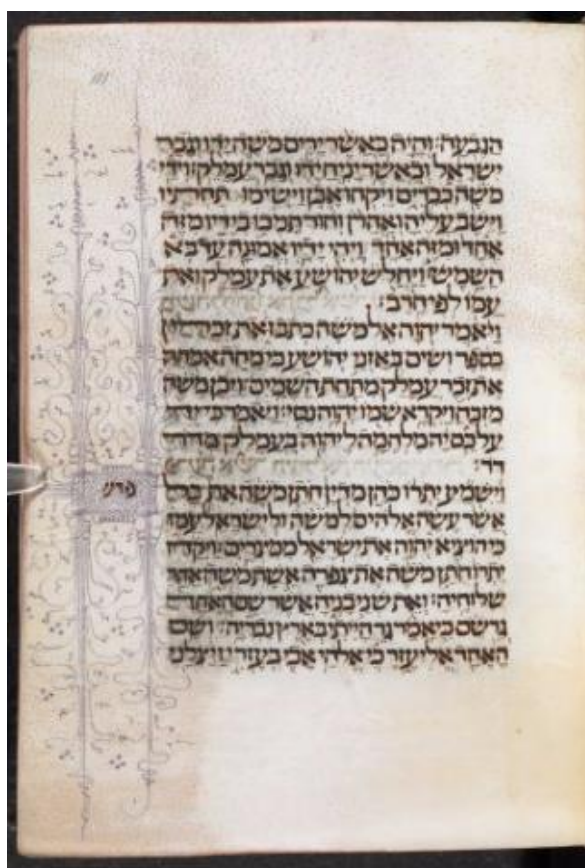 הגבעה׃ והיה כאשר ירים משה ידו וגבר
ישראל וכאשר יניח ידו וגבר עמלק׃ וידי
משה כבדים ויקחו אבן וישימו תחתיו
וישב עליה ואהרן וחור תמכו בידיו מזה
אחד ומזה אחד ויהי ידיו אמונה עד בא
השמש׃ ויחלש יהושע את עמלק ואת
עמו לפי חרב׃
ויאמר יהוה אל משה כתב זאת זכרון
בספר ושים באזני יהושע כי מחה אמחה
את זכר עמלק מתחת השמים׃ ויבן משה
מזבח ויקרא שמו יהוה נסי׃ ויאמר כי יד
על כס יה מלחמה ליהוה בעמלק מדר
דר׃
וישמע יתרו כהן מדין חתן משה את כל
אשר עשה אלהים למשה ולישראל עמו
כי הוציא יהוה את ישראל ממצרים׃ ויקח
יתרו חתן משה את צפרה אשת משה אחר
שלוחיה׃ ואת שני בניה אשר שם האחד
גרשם כי אמר גר הייתי בארץ נכריה׃ ושם
האחד אליעזר כי אלהי אבי בעזרי ויצלני
פרש